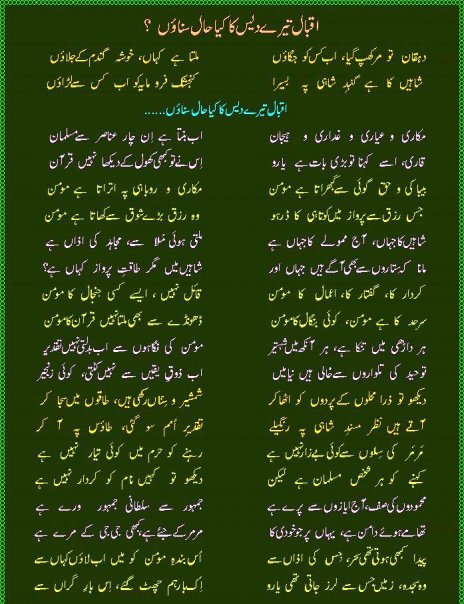 اقبال تیرے دیس کا کیا حال سناؤں ؟
دہقان تو مرکھپ گیا، اب کس کو جگاؤں ملتا ہے کہاں، خوشہ گندم کے جلاؤں
شاہیں کا ہے گنبدِ شاہی پہ بسیرا کنجشک فرومایہ کو اب کس سے لڑاؤں
اقبال تیرے دیس کا کیا حال سناؤں......
مکاری و عیاری و غداری و ہیجان اب بنتا ہے اِن چار عناصر سے مسلمان
قاری، اسے کہنا تو بڑی بات ہے یارو اِس نے تو کبھی کھول کے دیکھا نہیں قرآن
بیباکی و حق گوئی سے گھبراتا ہے مومن مکاری و روباہی پہ اتراتا ہے مومن
جس رزق سے پرواز میں کوتاہی کا ڈر ہو وہ رزق بڑے شوق سے کھاتا ہے مومن
شاہیں کا جہاں، آج ممولے کا جہاں ہے ملتی ہوئی مُلا سے، مجاہد کی اذاں ہے
مانا کہ ستاروں سے بھی آگے ہیں جہاں اور شاہیں میں مگر طاقتِ پرواز کہاں ہے؟
کردار کا، گفتار کا، اعمال کا مومن قائل نہیں، ایسے کسی جنجال کا مومن
سرحد کا ہے مومن، کوئی بنگال کا مومن ڈھونڈے سے بھی ملتا نہیں قرآن کا مومن
ہر داڑھی میں تنکا ہے، ہر آنکھ میں شہتیر مومن کی نگاہوں سے اب بدلتی نہیں تقدیر
توحید کی تلواروں سے خالی ہیں نیامیں اب ذوقِ یقیں سے نہیں کٹتی، کوئی زنجیر
دیکھو تو ذرا محلوں کے پردوں کو اٹھا کر شمشیر و سِناں رکھی ہیں، طاقوں میں سجا کر
آتے ہیں نظر مسندِ شاہی پہ رنگیلے تقدیرِ اُمم سو گئی، طاؤس پہ آ کر
مَرمَر کی سِلوں سے کوئی بےزار نہیں ہے رہنے کو حرم میں کوئی تیار نہیں ہے
کہنے کو ہر شخص مسلمان ہے لیکن دیکھو تو کہیں نام کو کردار نہیں ہے
محمودوں کی صف، آج ایازوں سے پرے ہے جمہور سے سلطانی جمہور ورے ہے
تھامے ہوئے دامن ہے، یہاں پر جو خودی کا مرمر کے جئے ہے، کبھی جی جی کے مرے ہے
پیدا کبھی ہوتی تھی سحر، جس کی اذاں سے اُس بندہِ مومن کو میں اب لاؤں کہاں سے
وہ سجدہ، زمیں جس سے لرز جاتی تھی یارو اِک بار ہم چھٹ گئے، اِس بارِ گراں سے